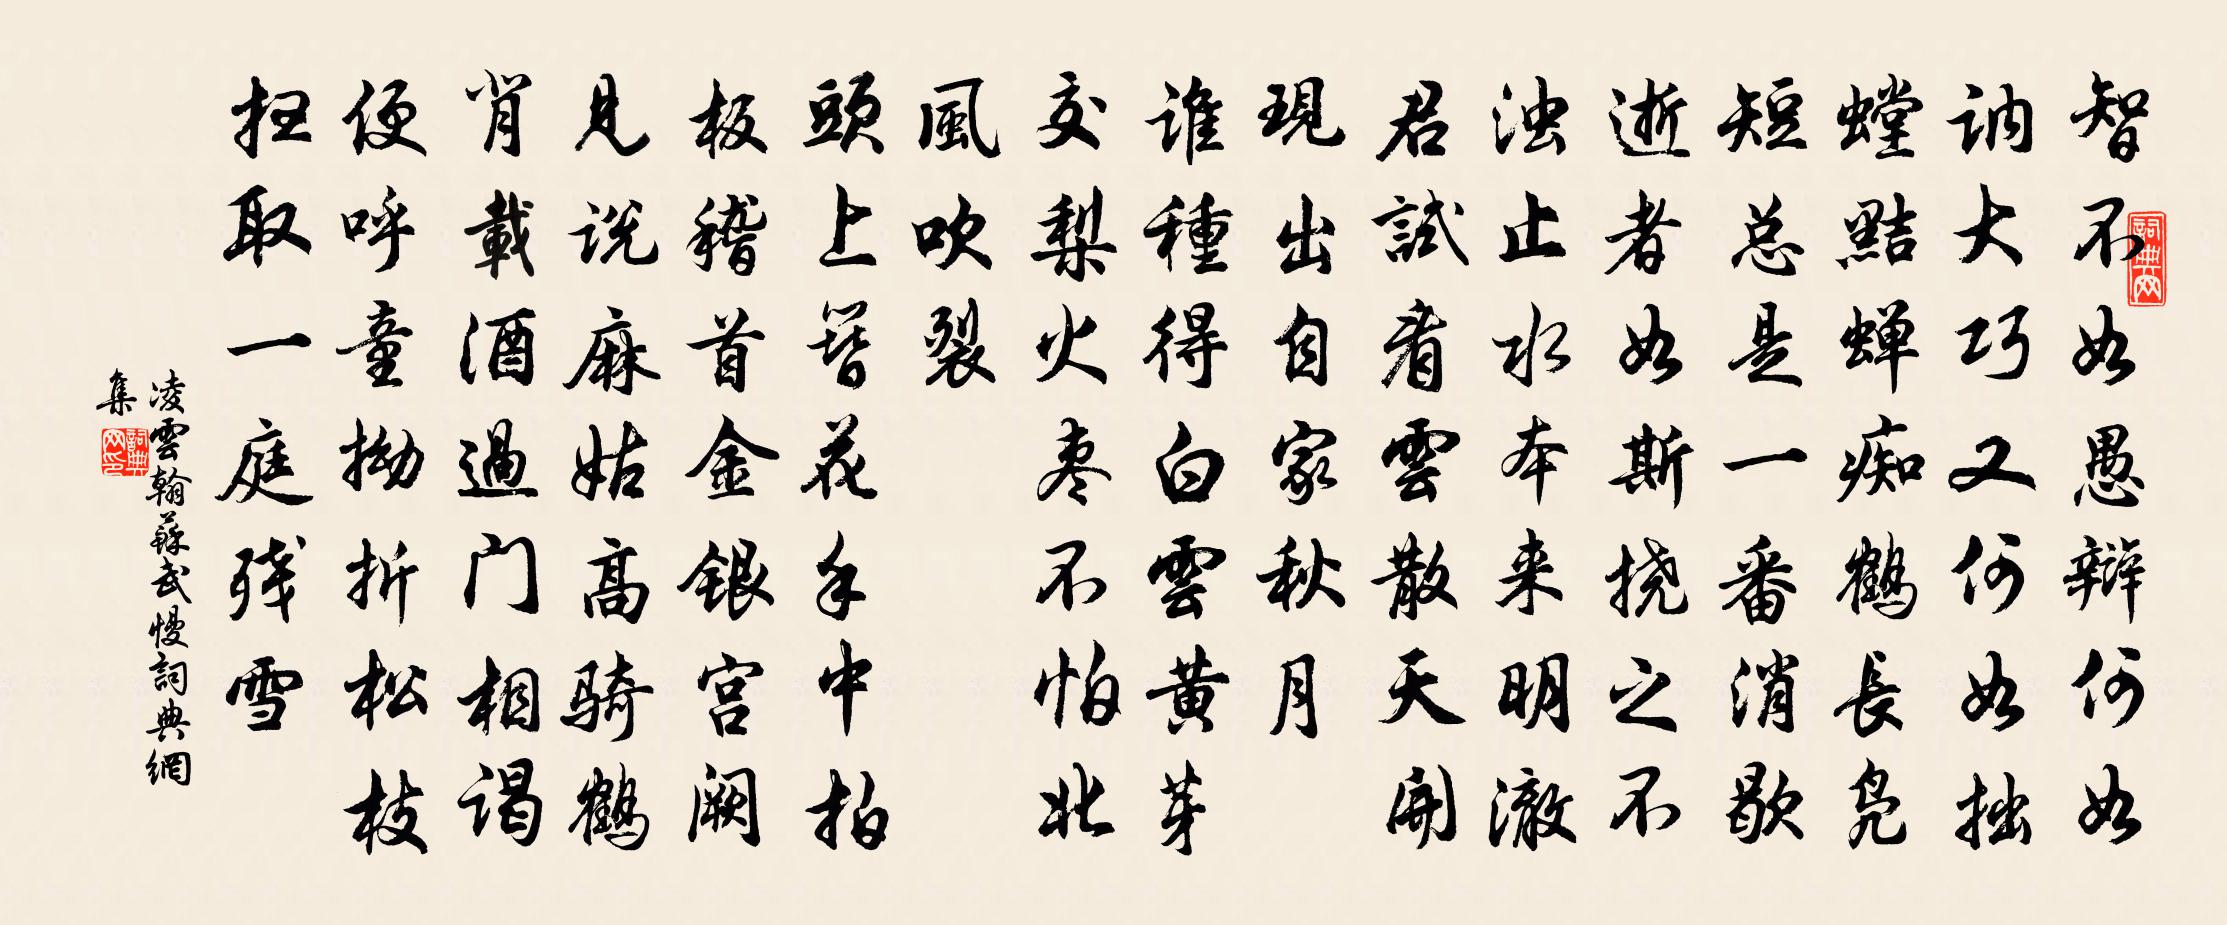 智不如愚辩何如
讷大巧又何如拙
螳黠蝉痴鹤長凫
短总是一番消歇
逝者如斯挠之不
浊止水本来明澈
君試看雲散天開
現出自家秋月
谁種得白雲黄芽
交梨火枣不怕北
風吹裂
頭上簪花手中拍
板稽首金银宫阙
見说麻姑高骑鹤
肯載酒過门相谒
便呼童拗折松枝
扭取一庭残雪
凌雲翰蘇武慢詞典網
集
詞典网
詞典网印